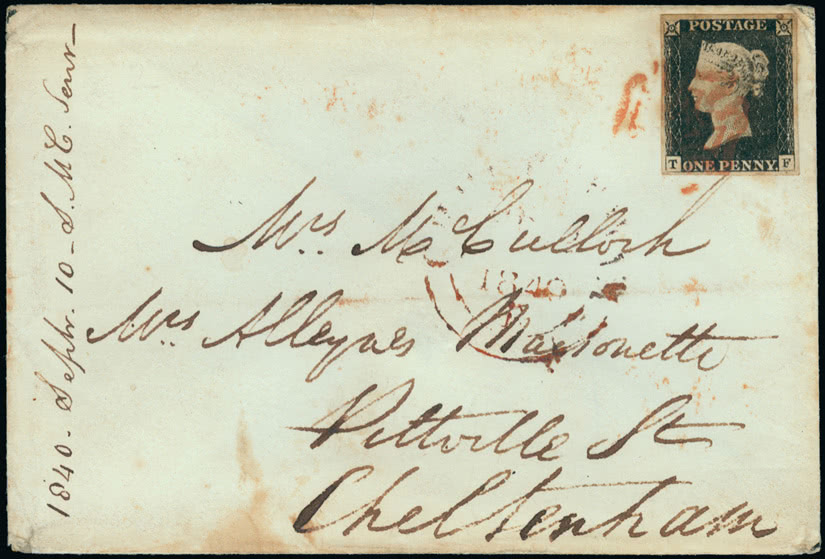 1840 - Septr. 10 - S. Mc C. Senr -
POSTAGE
T ONE PENNY. F
Mrs. Mc Culloch
1840
Mrs Alleynes Maisonette
Pittville St
Cheltenham